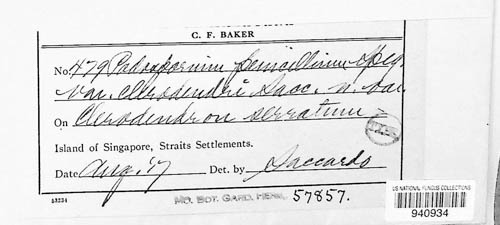 C. F. BAKER
No. 479 Podosporium penicillioides Speg.
var. Clerodendri Sacc. n. var.
On Clerodendron serratum
Island of Singapore, Straits Settlements.
Date Aug. '17 Det. by Saccardo
53234
MO. BOT. GARD. HERB. 57857.
US NATIONAL FUNGUS COLLECTIONS
940934